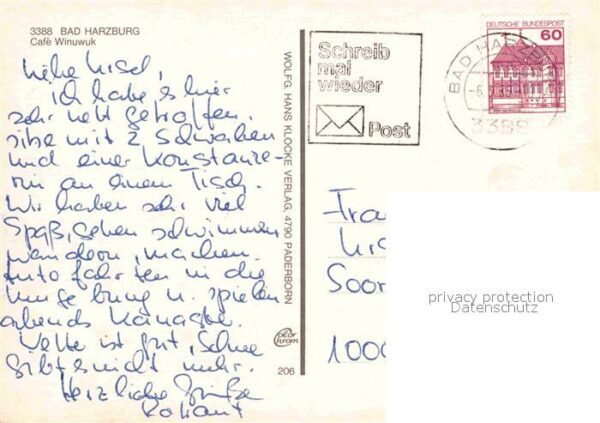 3388 BAD HARZBURG
Café Winuwuk
Liebe Lisel,
ich habe es hier
sehr nett getroffen.
sitze mit 2 Schwaben
und einer Konstanze-
rin an einem Tisch.
Wir haben sehr viel
Spaß, gehen schwimmen
wandern, machen
Autofahrten in die
Umgebung u. spielen
abends Kanaster.
Wetter ist gut, Schnee
gibt es nicht mehr.
Herzliche Grüße
WOLFG. HANS KLOCKE VERLAG, 4790 PADERBORN
color
chrom
206
Schreib
mal
wieder
Post
DEUTSCHE BUNDESPOST
60
BAD HARZB
3388
Frau
Soor
1000
privacy protection
Datenschutz